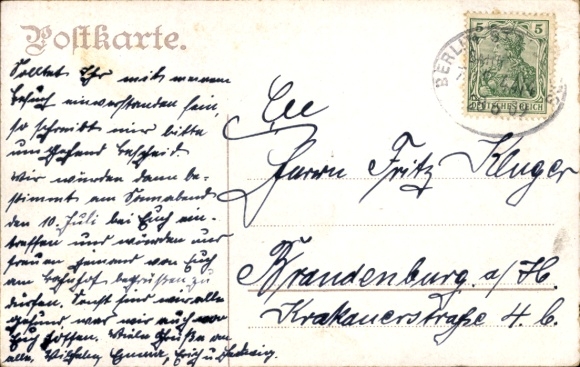 Postkarte.
Solltet Ihr mit unserm
Besuch einverstanden sein,
so schreibt mir bitte
umgehend Bescheid.
Wir würden dann be-
stimmt am Sonnabend
den 10. Juli bei Euch ein-
treffen und würden uns
freuen jemand von Euch
am Bahnhof begrüßen zu
dürfen. Sonst sind wir alle
gesund, was wir auch von
Euch hoffen. Viele Grüße an
alle, Wilhelm, Emma, Erich u. Hedwig.
5 5
DEUTSCHES REICH
BERLIN
Herrn Fritz Kluger
Brandenburg a/H.
Krakauerstraße 4. b.